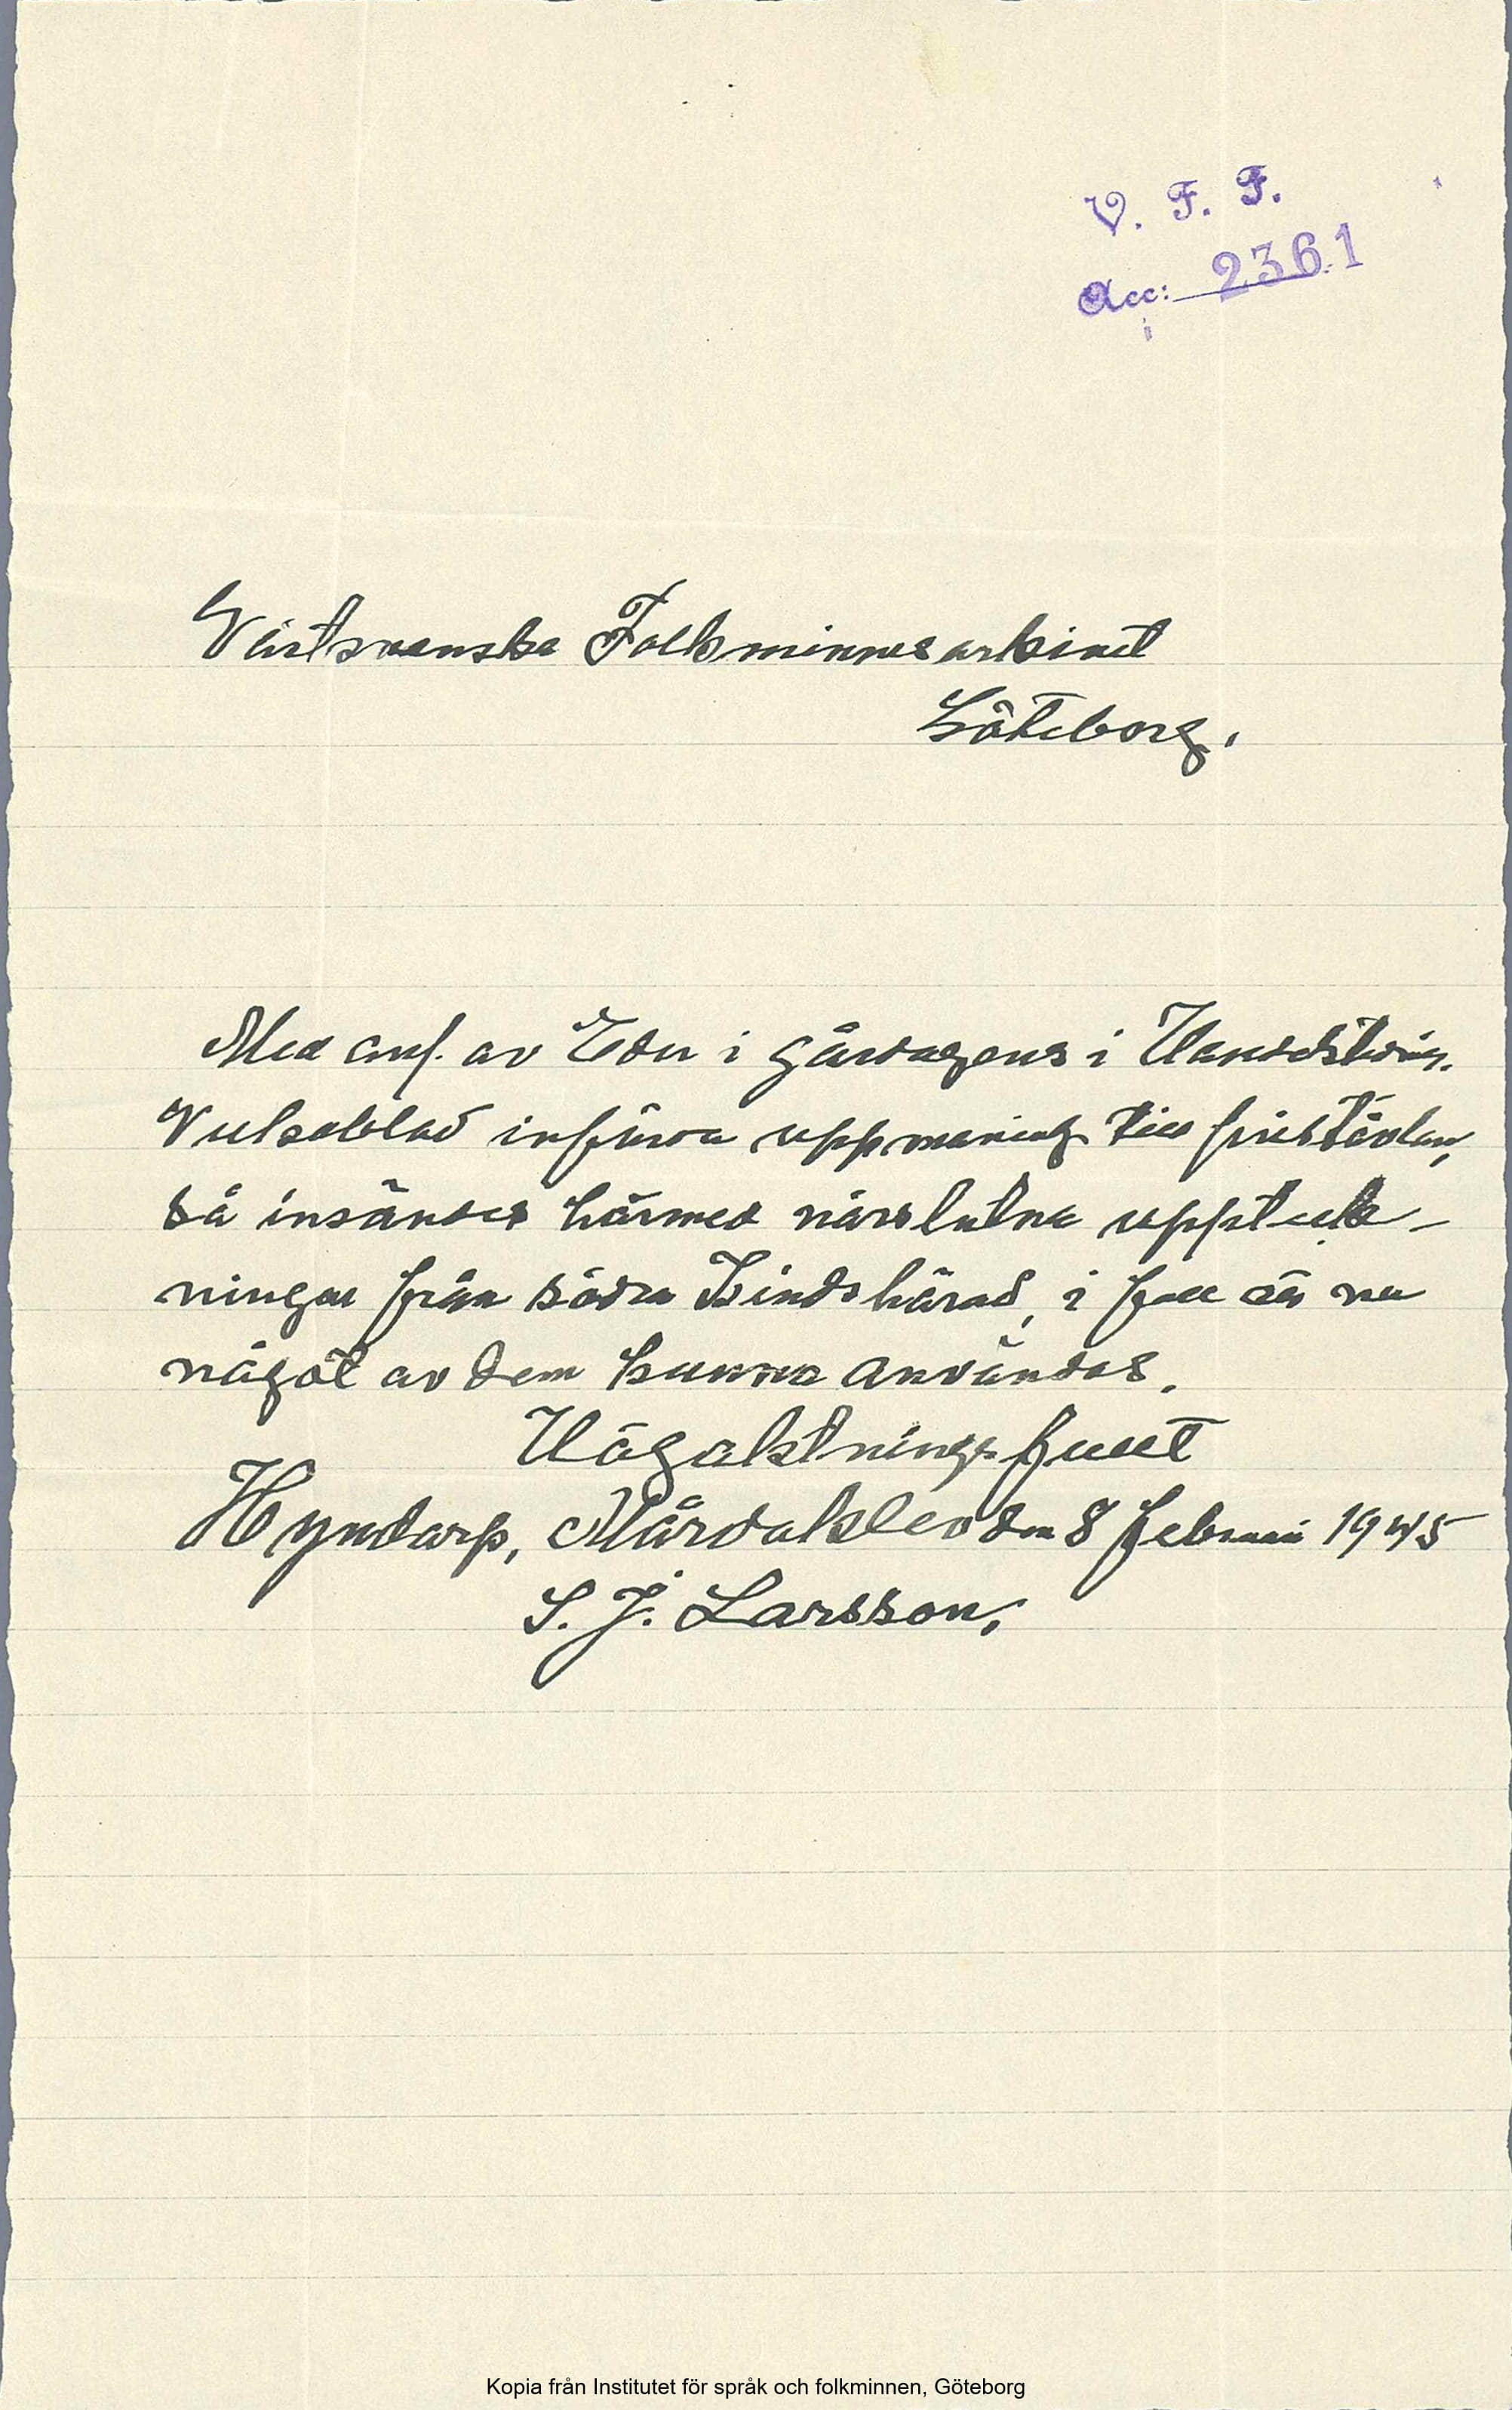 V. F. F.
Acc: 2361
Västsvenska Folkminnesarkivet
Göteborg.
Med anl. av Eder i gårdagens i
Veckoblad införda uppmaning till pristävlan,
så insändes härmed närslutna uppteck-
ningar från södra Kinds härad, i fall nu
något av dem kunna användas.
Högaktningsfullt
Hyndarp, Mårdaklev den 8 februari 1945
S. J. Larsson.
Kopia från Institutet för språk och folkminnen, Göteborg